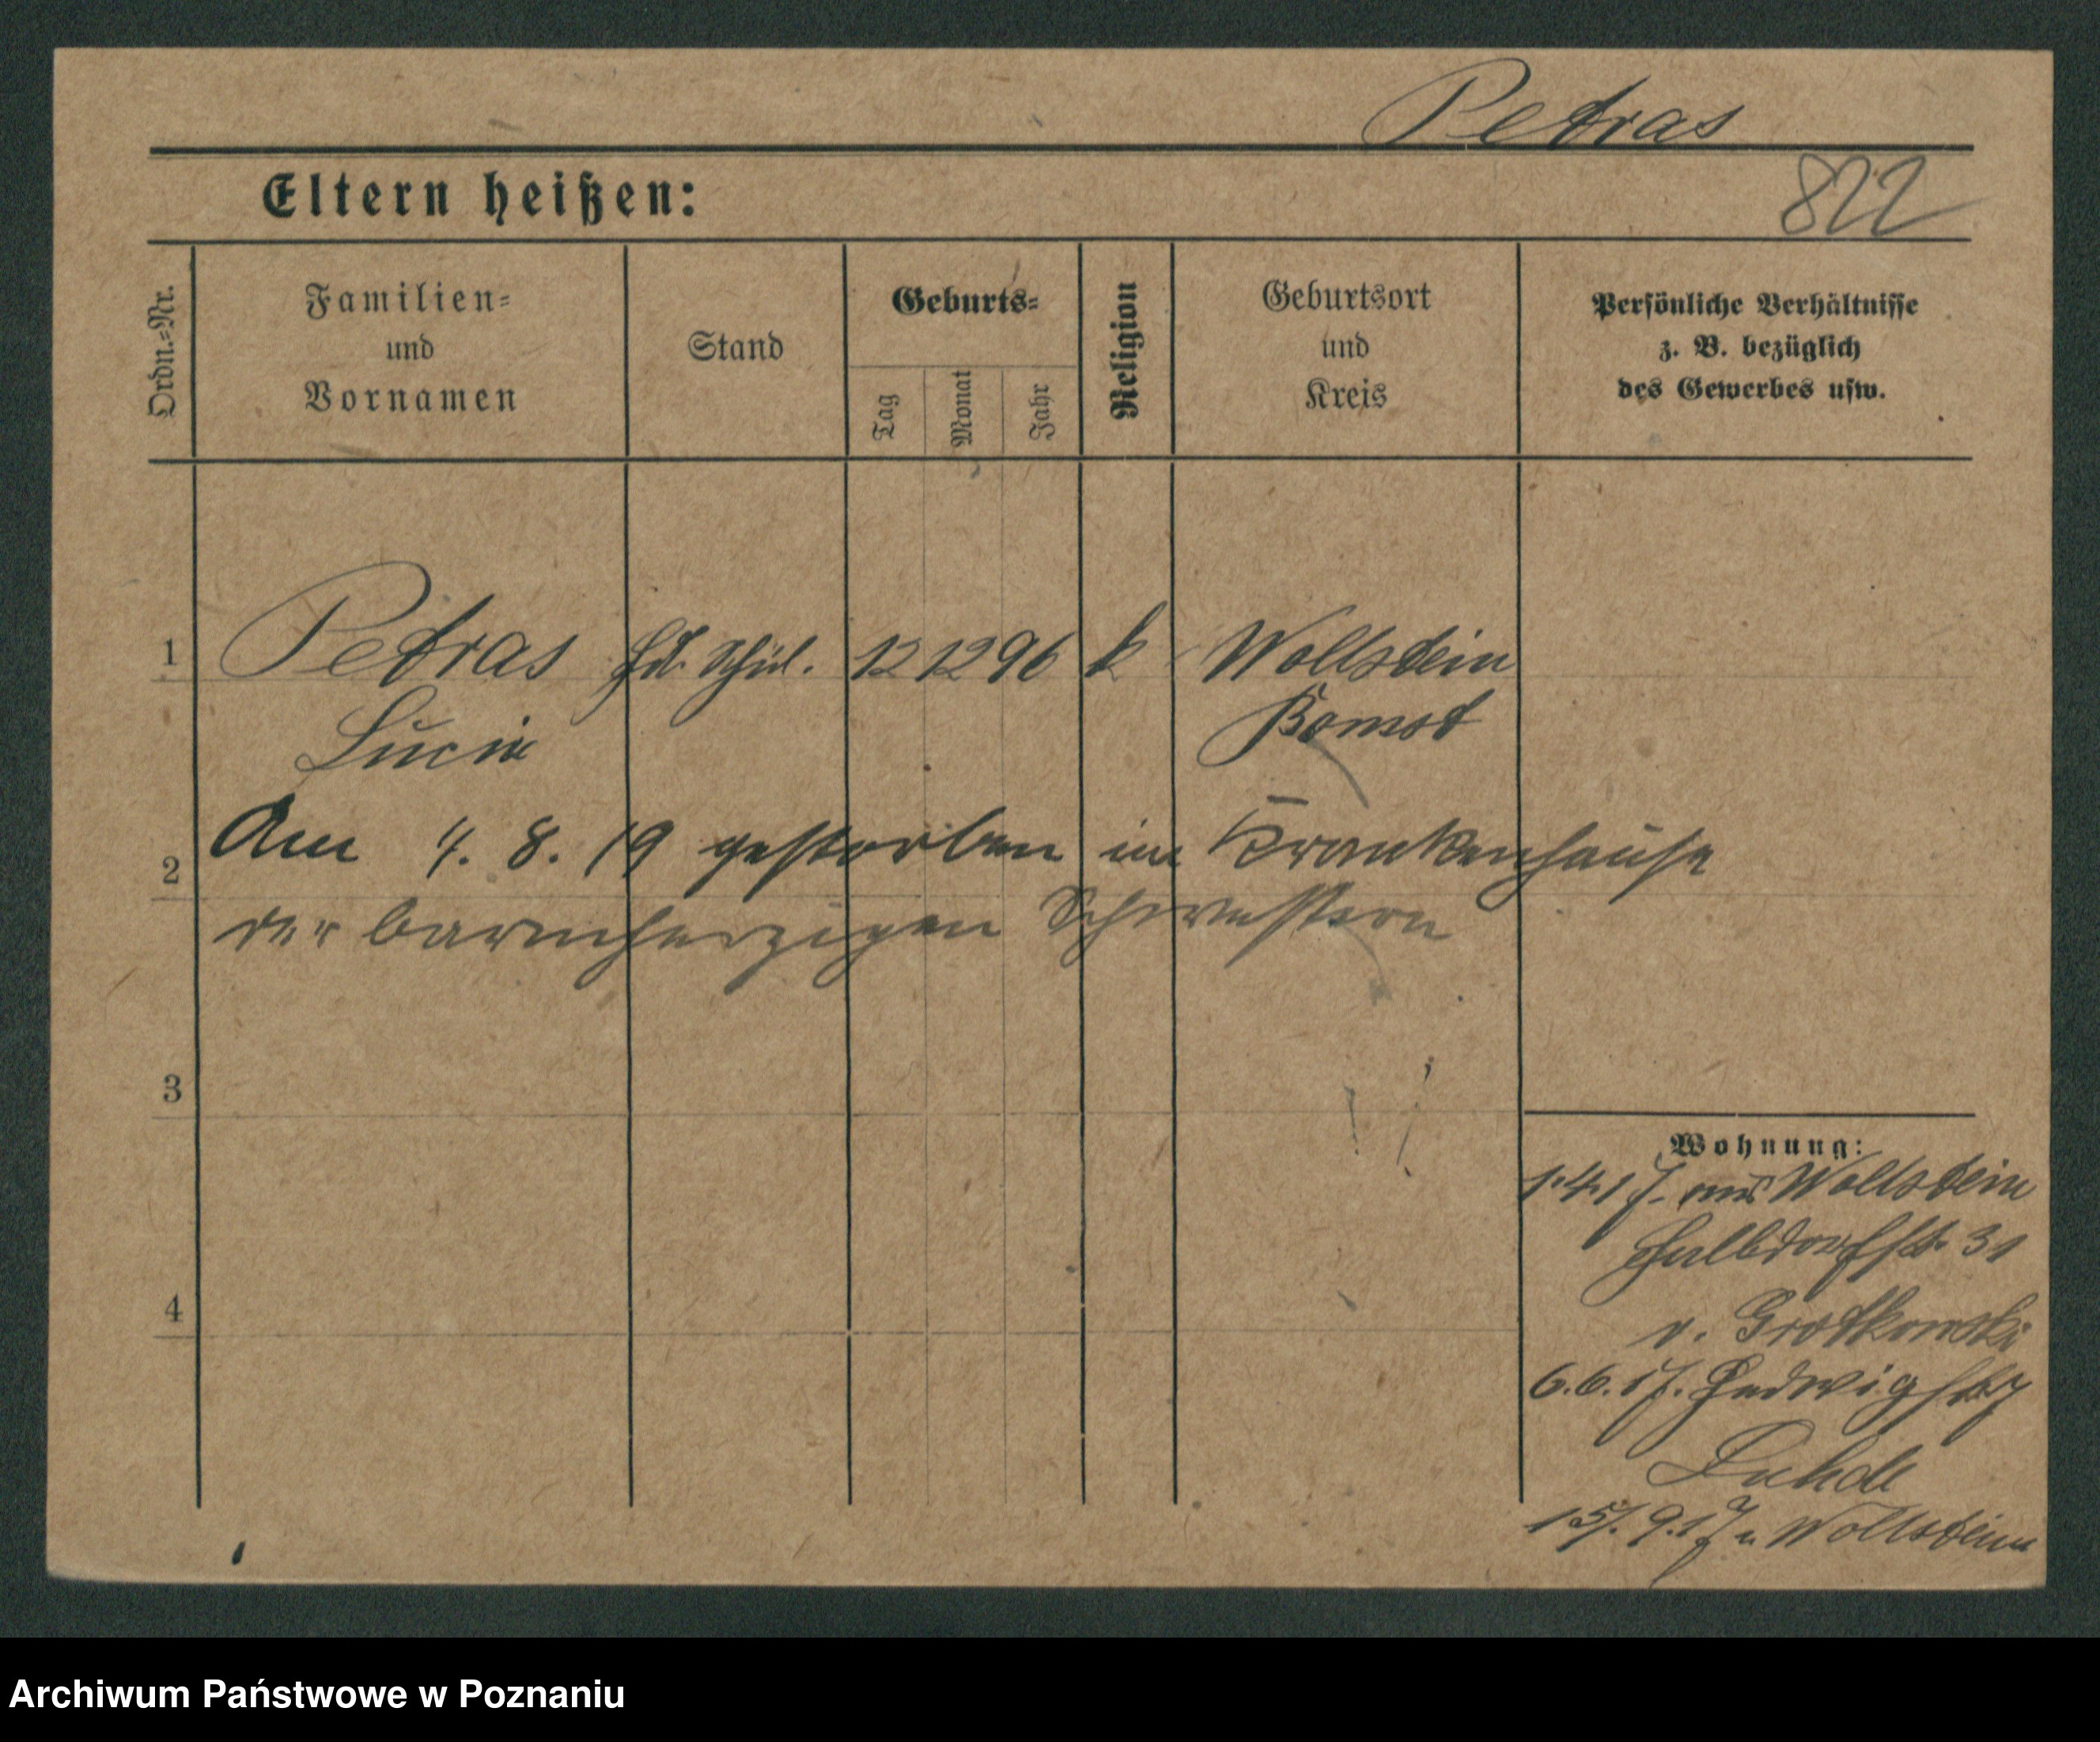 Petras
Eltern heißen:
822
Ordn.=Nr.
Familien=
und
Vornamen
Stand
Geburts=
Tag
Monat
Jahr
Religion
Geburtsort
und
Kreis
Persönliche Verhältnisse
z. B. bezüglich
des Gewerbes usw.
1
Petras Schül. 12 12 96 k Wollstein
Lucie
Bomst
2
Am 4. 8. 19 gestorben im Krankenhause
der barmherzigen Schwestern
3
4
Wohnung:
1.4.17. aus Wollstein
Halbdorfstr. 31
v. Grotkowski
6.6.17. Hedwigstr 7
15/.9.17 n Wollstein
Archiwum Państwowe w Poznaniu